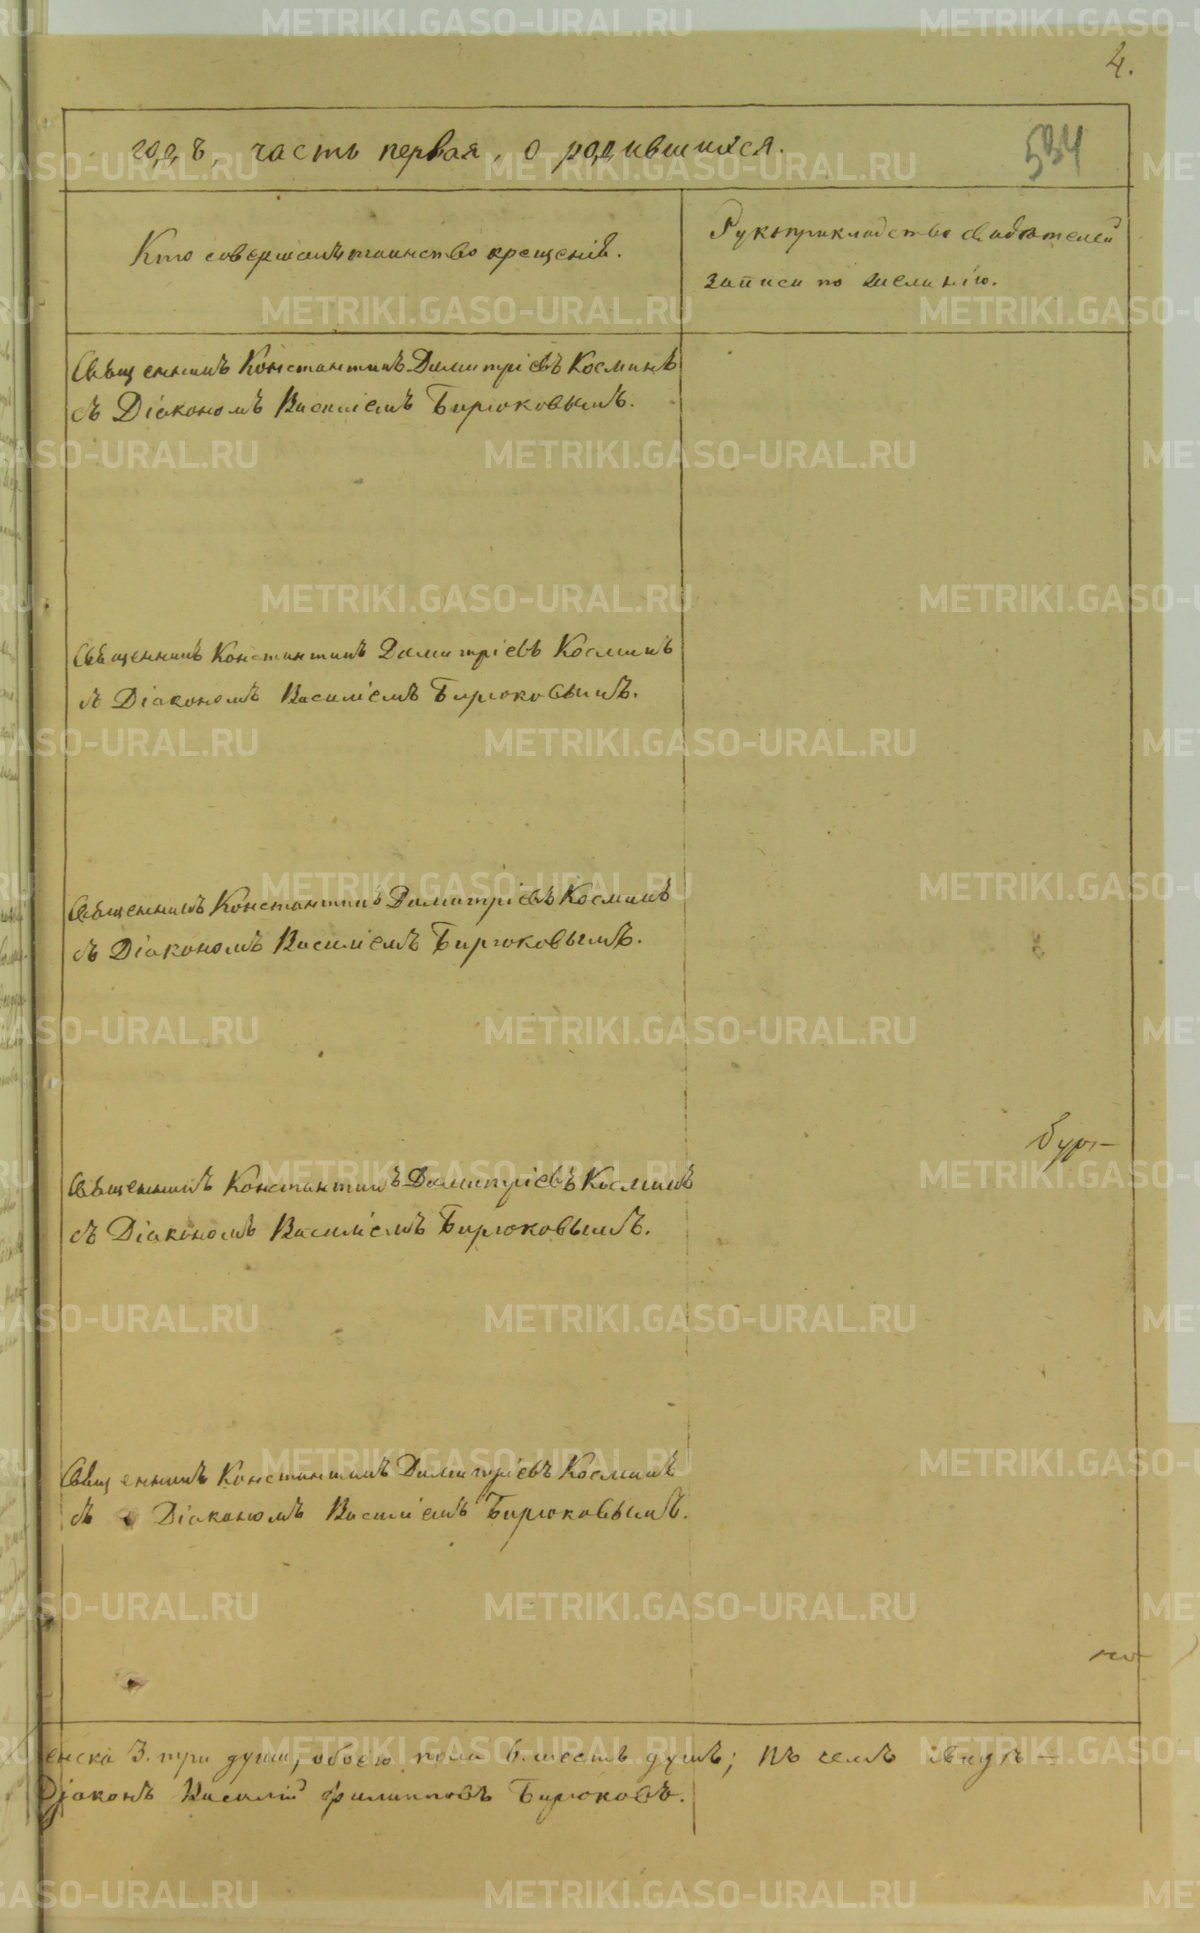 4.
годъ, часть первая, о родившихся.
534
Кто совершалъ таинство крещенія.
Рукоприкладство свидѣтелей
записи по желанію.
Священникъ Константинъ Димитріевъ Косминъ
съ Діакономъ Василіемъ Бирюковымъ.
Священникъ Константинъ Димитріевъ Косминъ
съ Діакономъ Василіемъ Бирюковымъ.
Священникъ Константинъ Димитріевъ Косминъ
съ Діакономъ Василіемъ Бирюковымъ.
Священникъ Константинъ Димитріевъ Косминъ
съ Діакономъ Василіемъ Бирюковымъ.
Священникъ Константинъ Димитріевъ Косминъ
съ Діакономъ Василіемъ Бирюковымъ.
енска 3. три души, обоего пола 6. шесть душъ; въ чемъ свидѣ-
Діаконъ Василій Филипповъ Бирюковъ.
METRIKI.GASO-URAL.RU